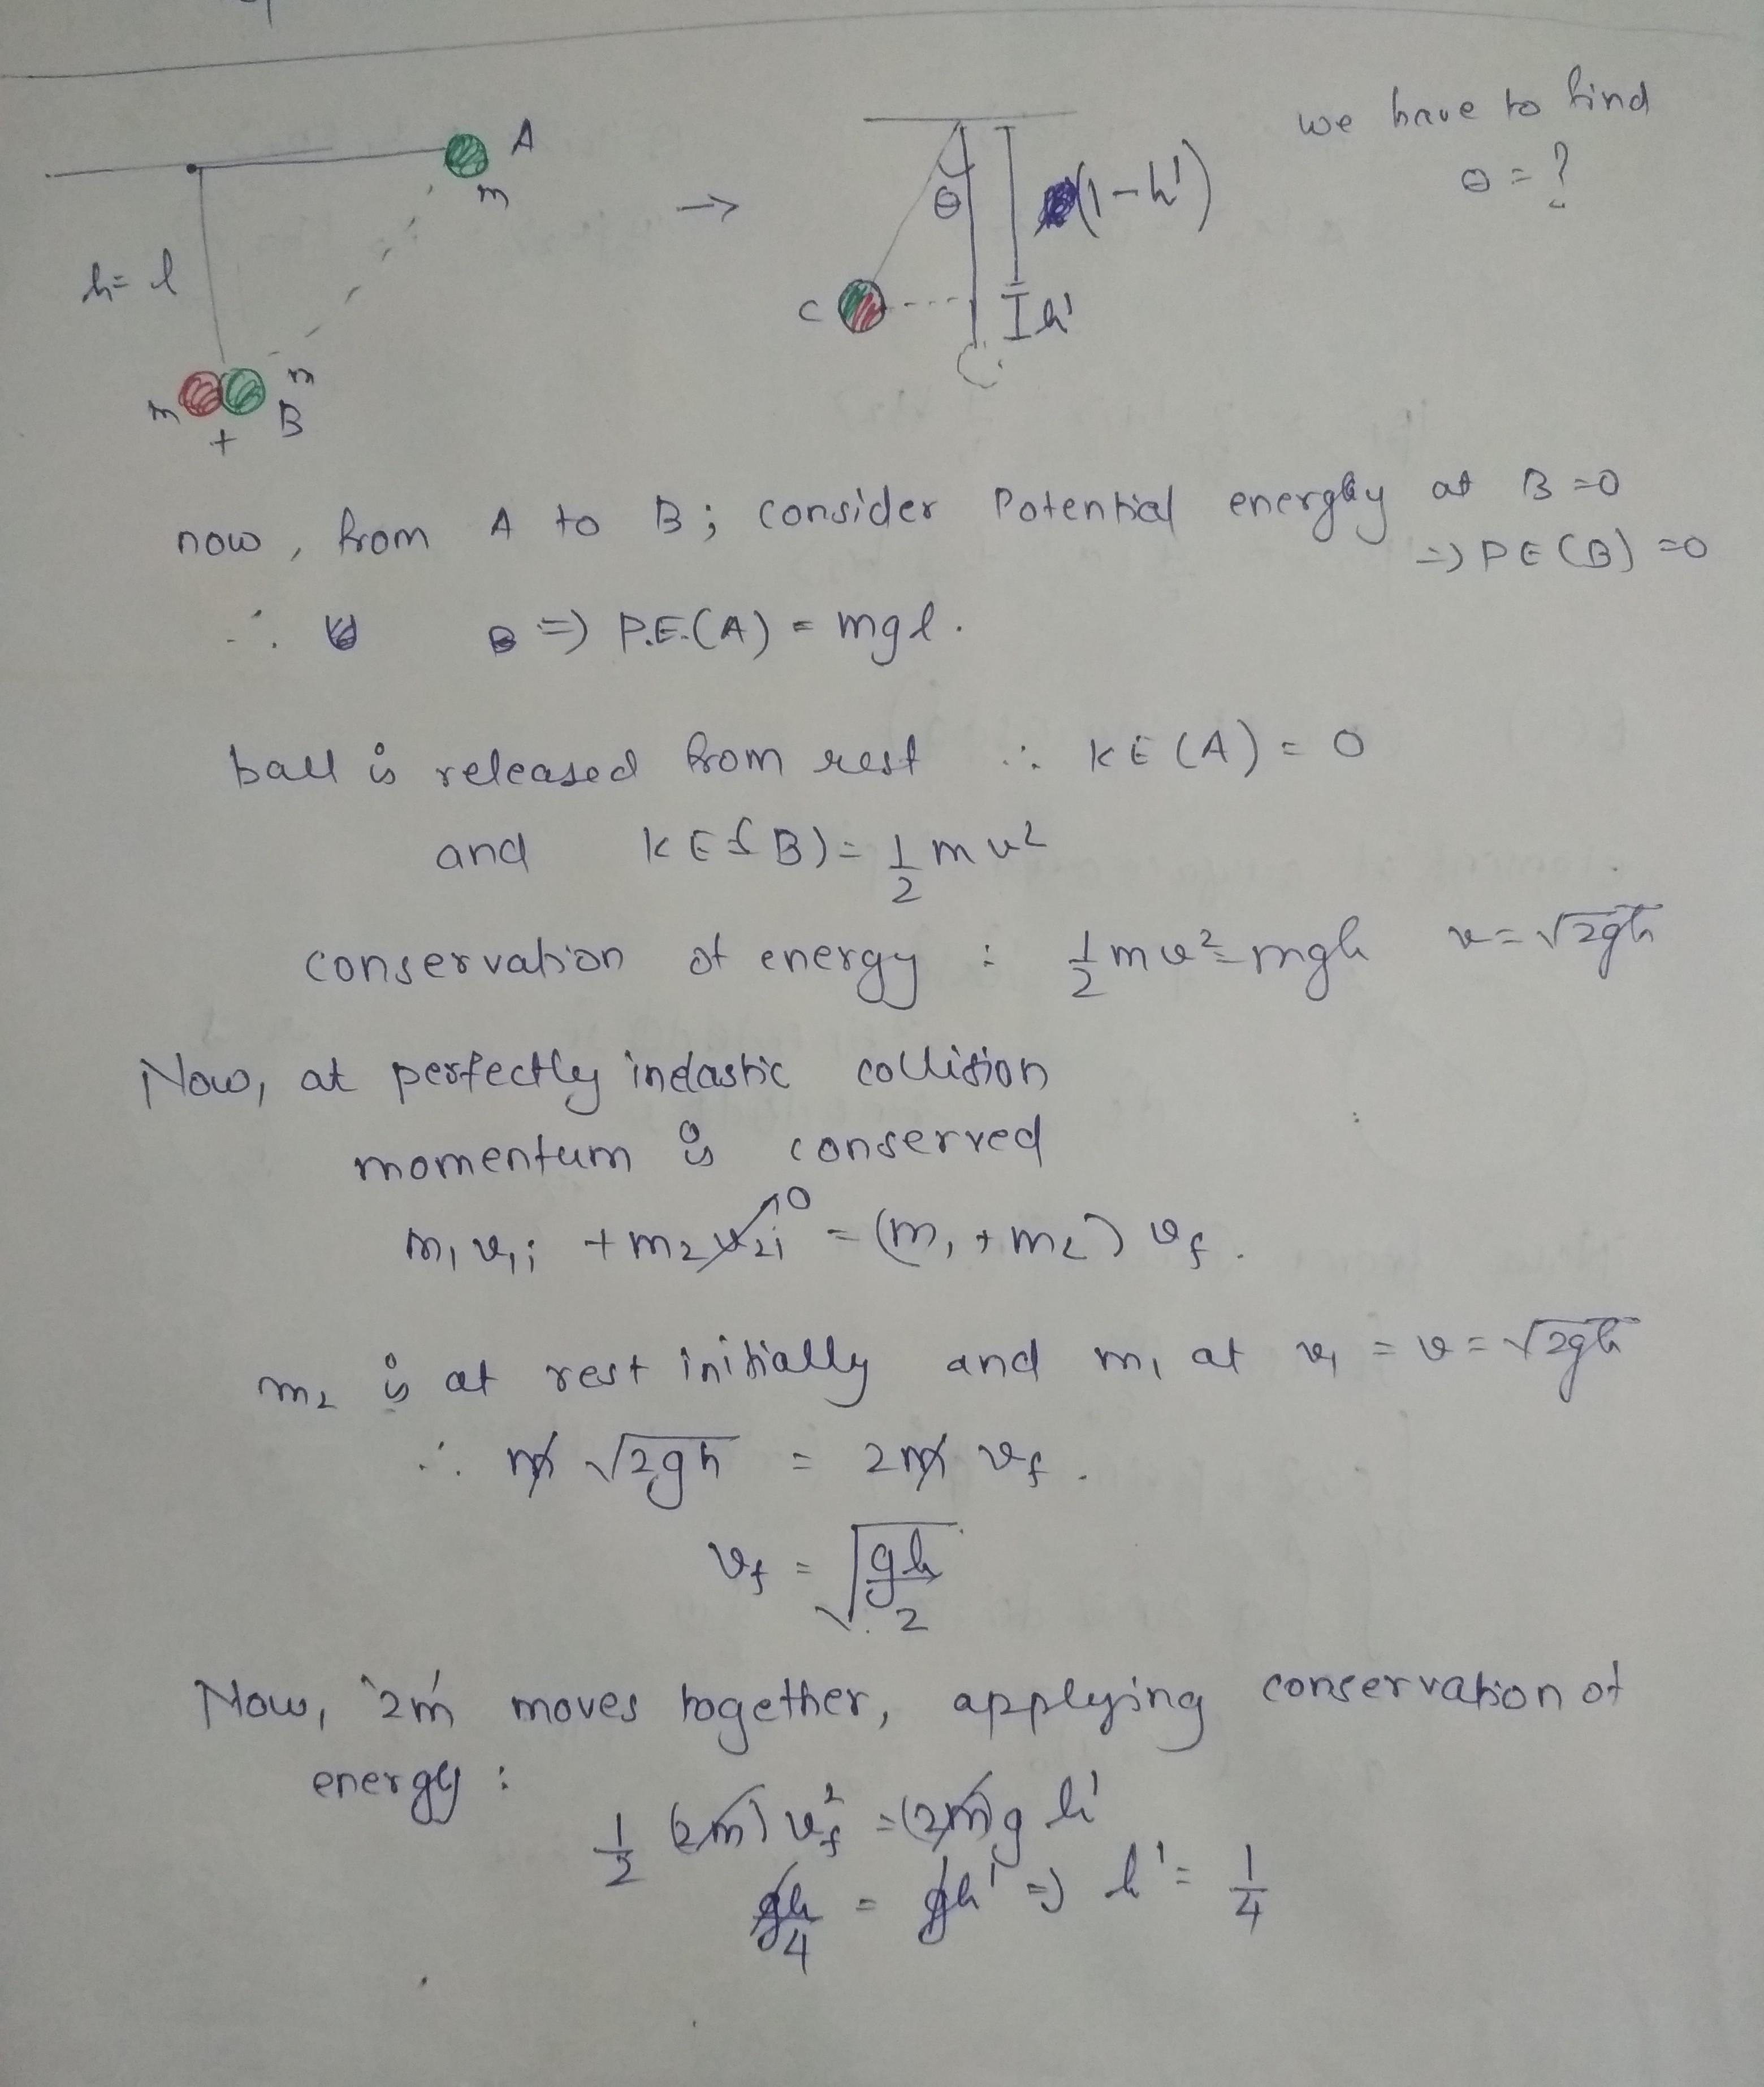 A
m
h = l
m
m
+
B
→
θ
(1-h')
C
I h'
we have to find
θ = ?
now, from A to B; consider Potential energy at B=0
⇒ PE(B) =0
∴ ⇒ P.E.(A) = mgl.
ball is released from rest ∴ KE(A) = 0
and KE(B) = 1/2 mv²
conservation of energy : 1/2 mv² = mgh v = √2gh
Now, at perfectly inelastic collision
momentum is conserved
m₁v₁ᵢ + m₂v₂ᵢ⁰ = (m₁ + m₂) v_f.
m₂ is at rest initially and m₁ at v₁ = v = √2gh
∴ m √2gh = 2m v_f.
v_f = √(gh/2)
Now, '2m' moves together, applying conservation of
energy :
1/2 (2m) v_f² = (2m)g h'
gh/4 = gh' ⇒ h' = 1/4